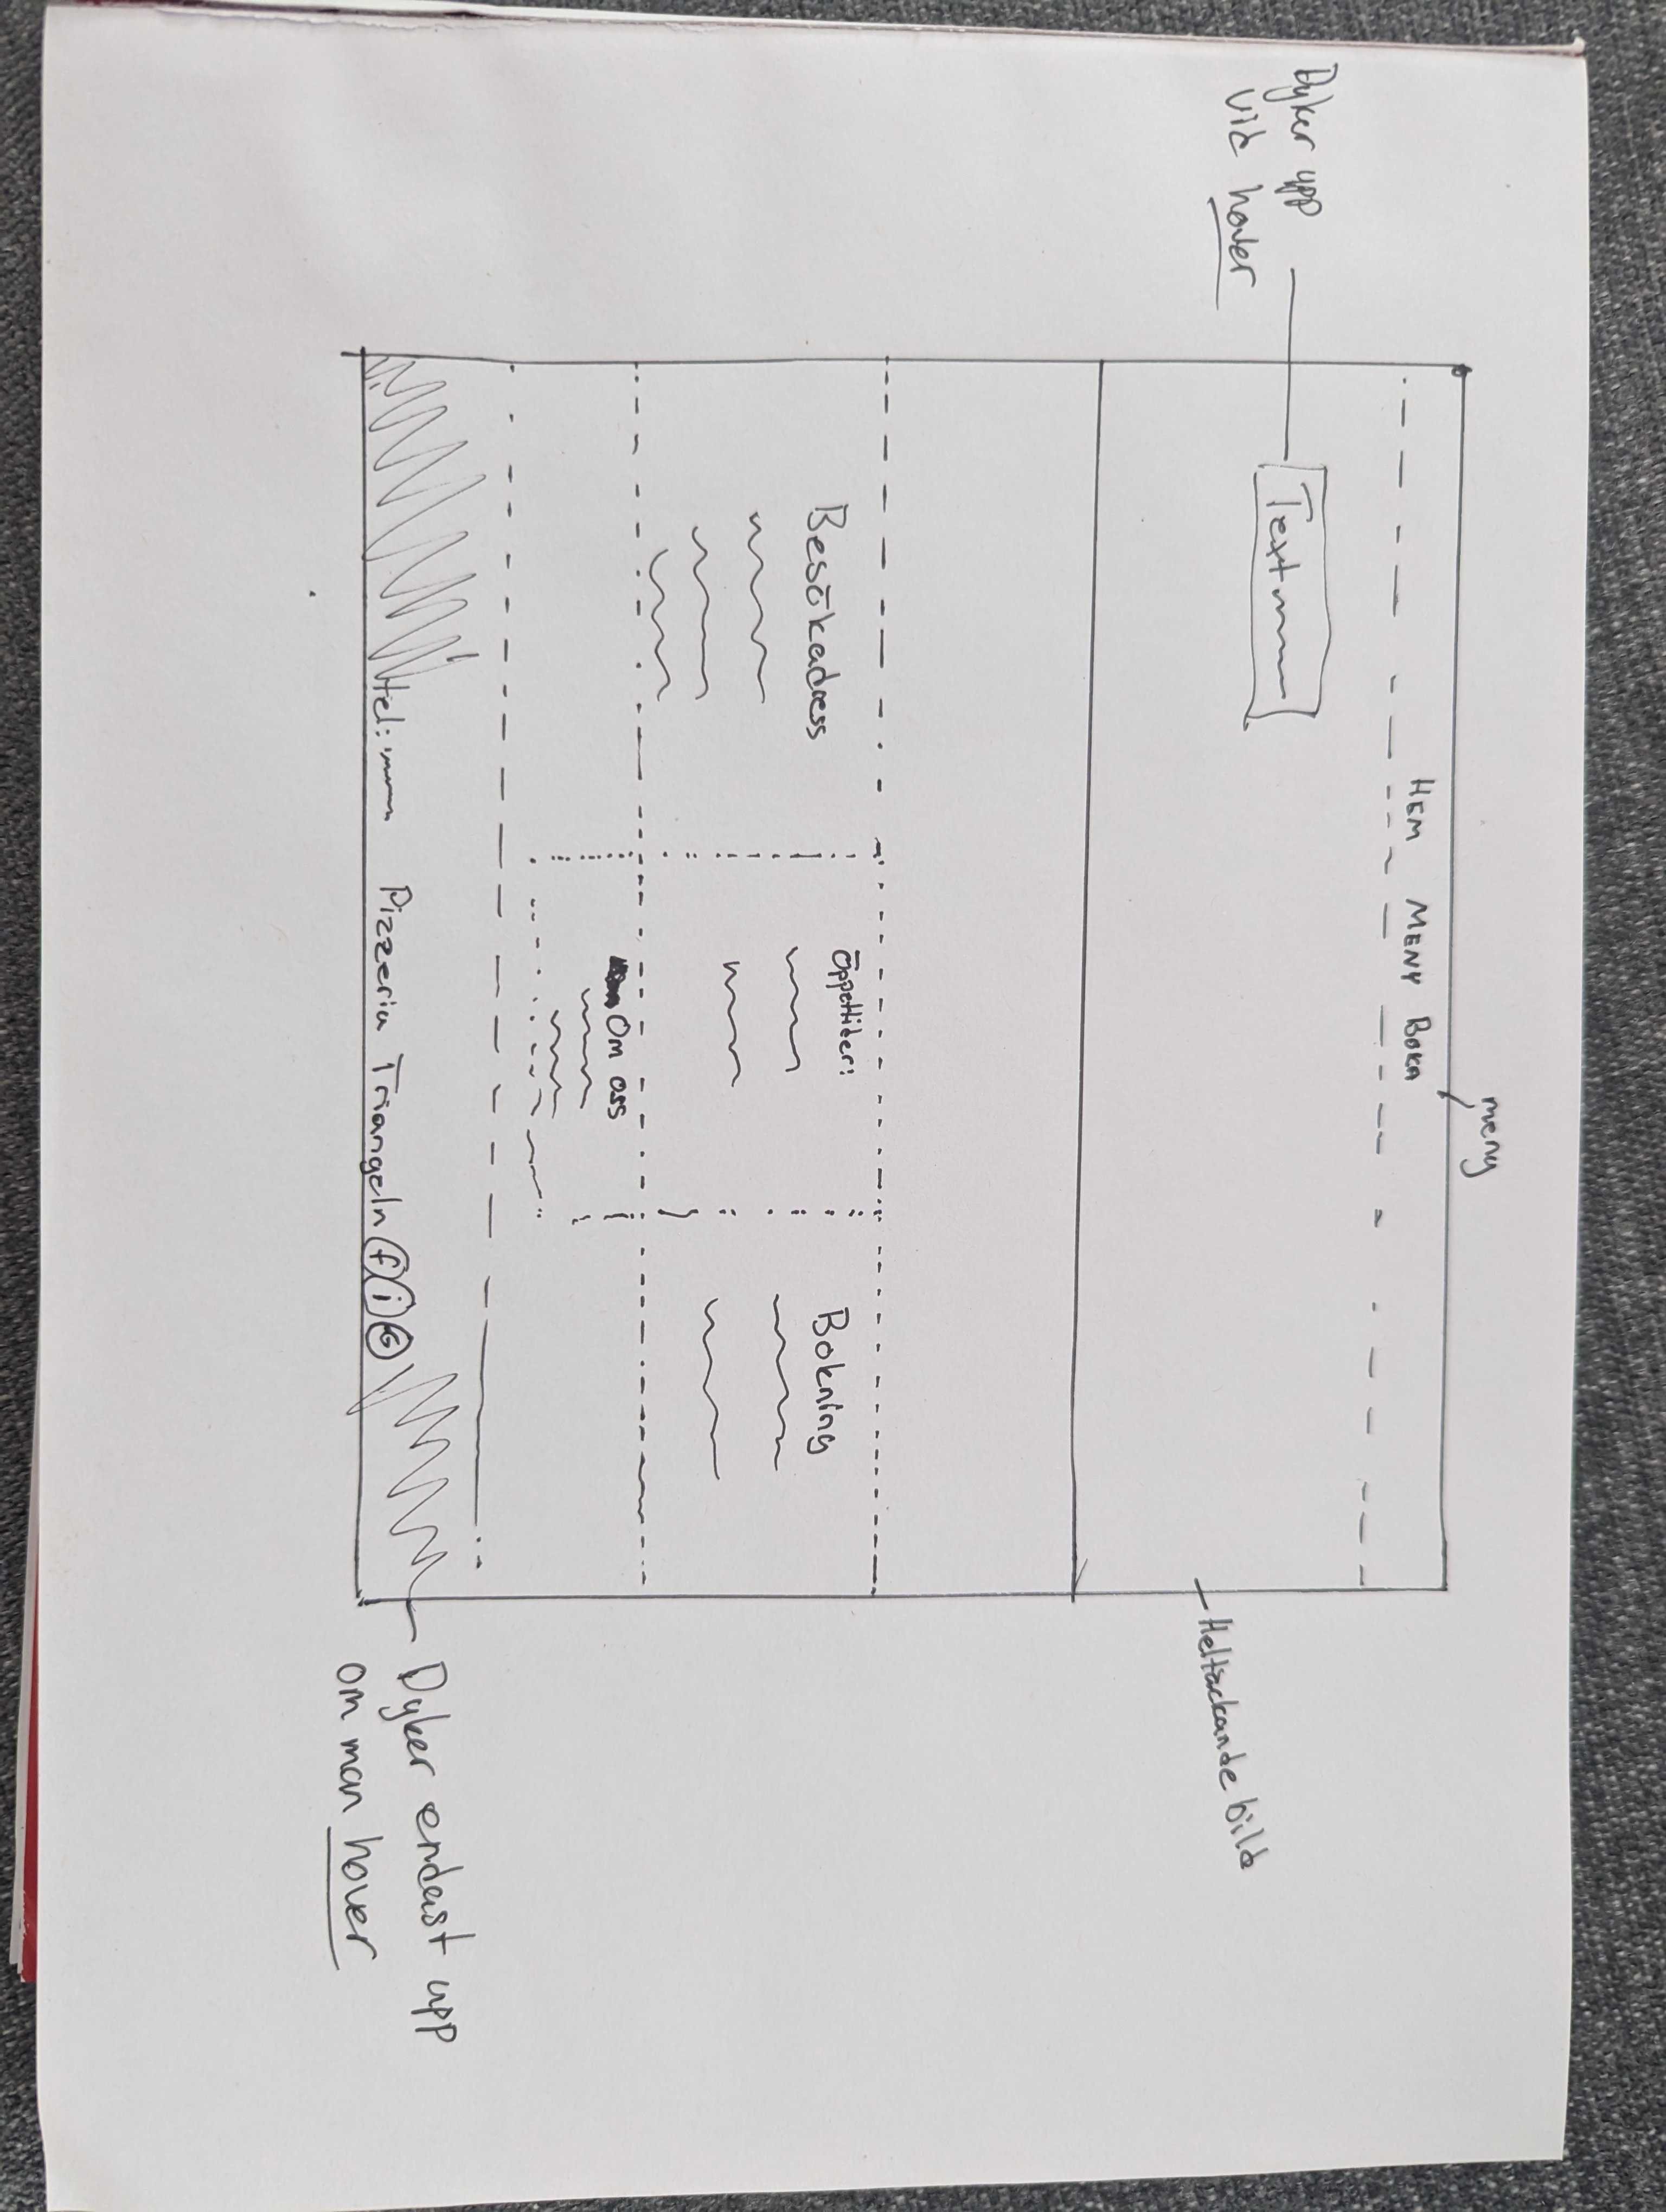 meny
HEM MENY BOKA
Dyker upp
vid hover
Text
Heltäckande bild
Besökadress
Öppettider:
Bokning
Om oss
tel:
Pizzeria Triangeln f i G
Dyker endast upp
om man hover